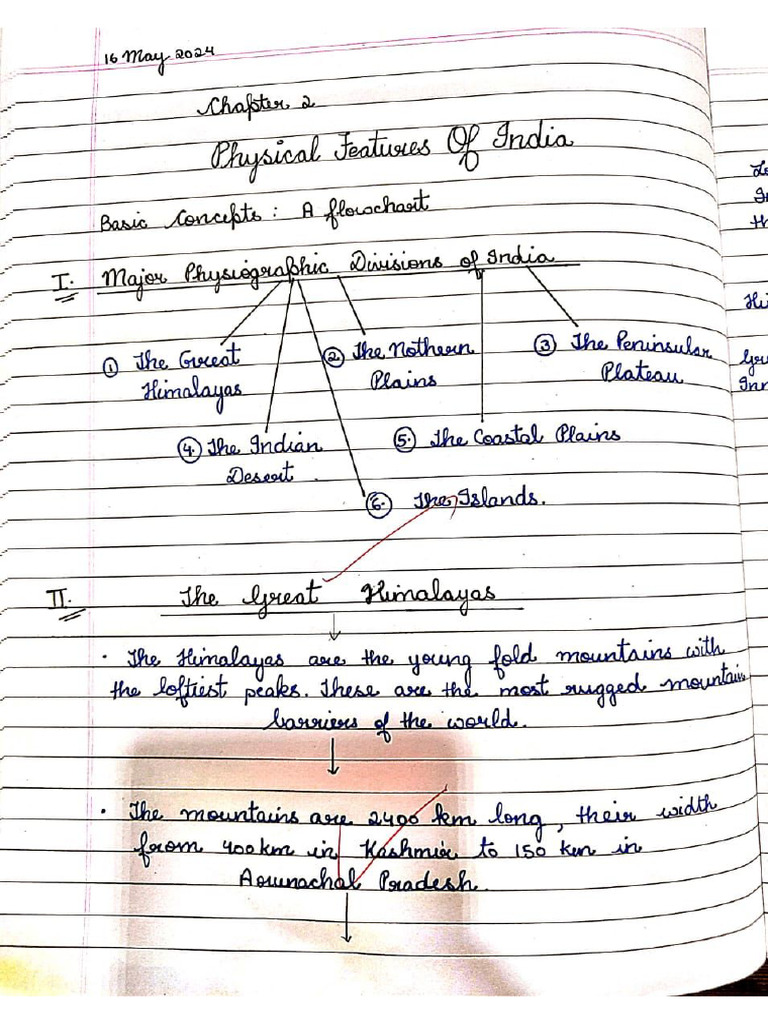 16 May 2024
Chapter 2
Physical Features Of India
Basic Concepts : A flowchart
I. Major Physiographic Divisions of India
① The Great
Himalayas
② The Nothern
Plains
③ The Peninsular
Plateau
④ The Indian
Desert.
⑤ The Coastal Plains
⑥ The Islands.
II. The Great Himalayas
· The Himalayas are the young fold mountains with
the loftiest peaks. These are the most rugged mountain
barriers of the world.
· The mountains are 2400 km long, their width
from 400km in Kashmir to 150 km in
Arunachal Pradesh.